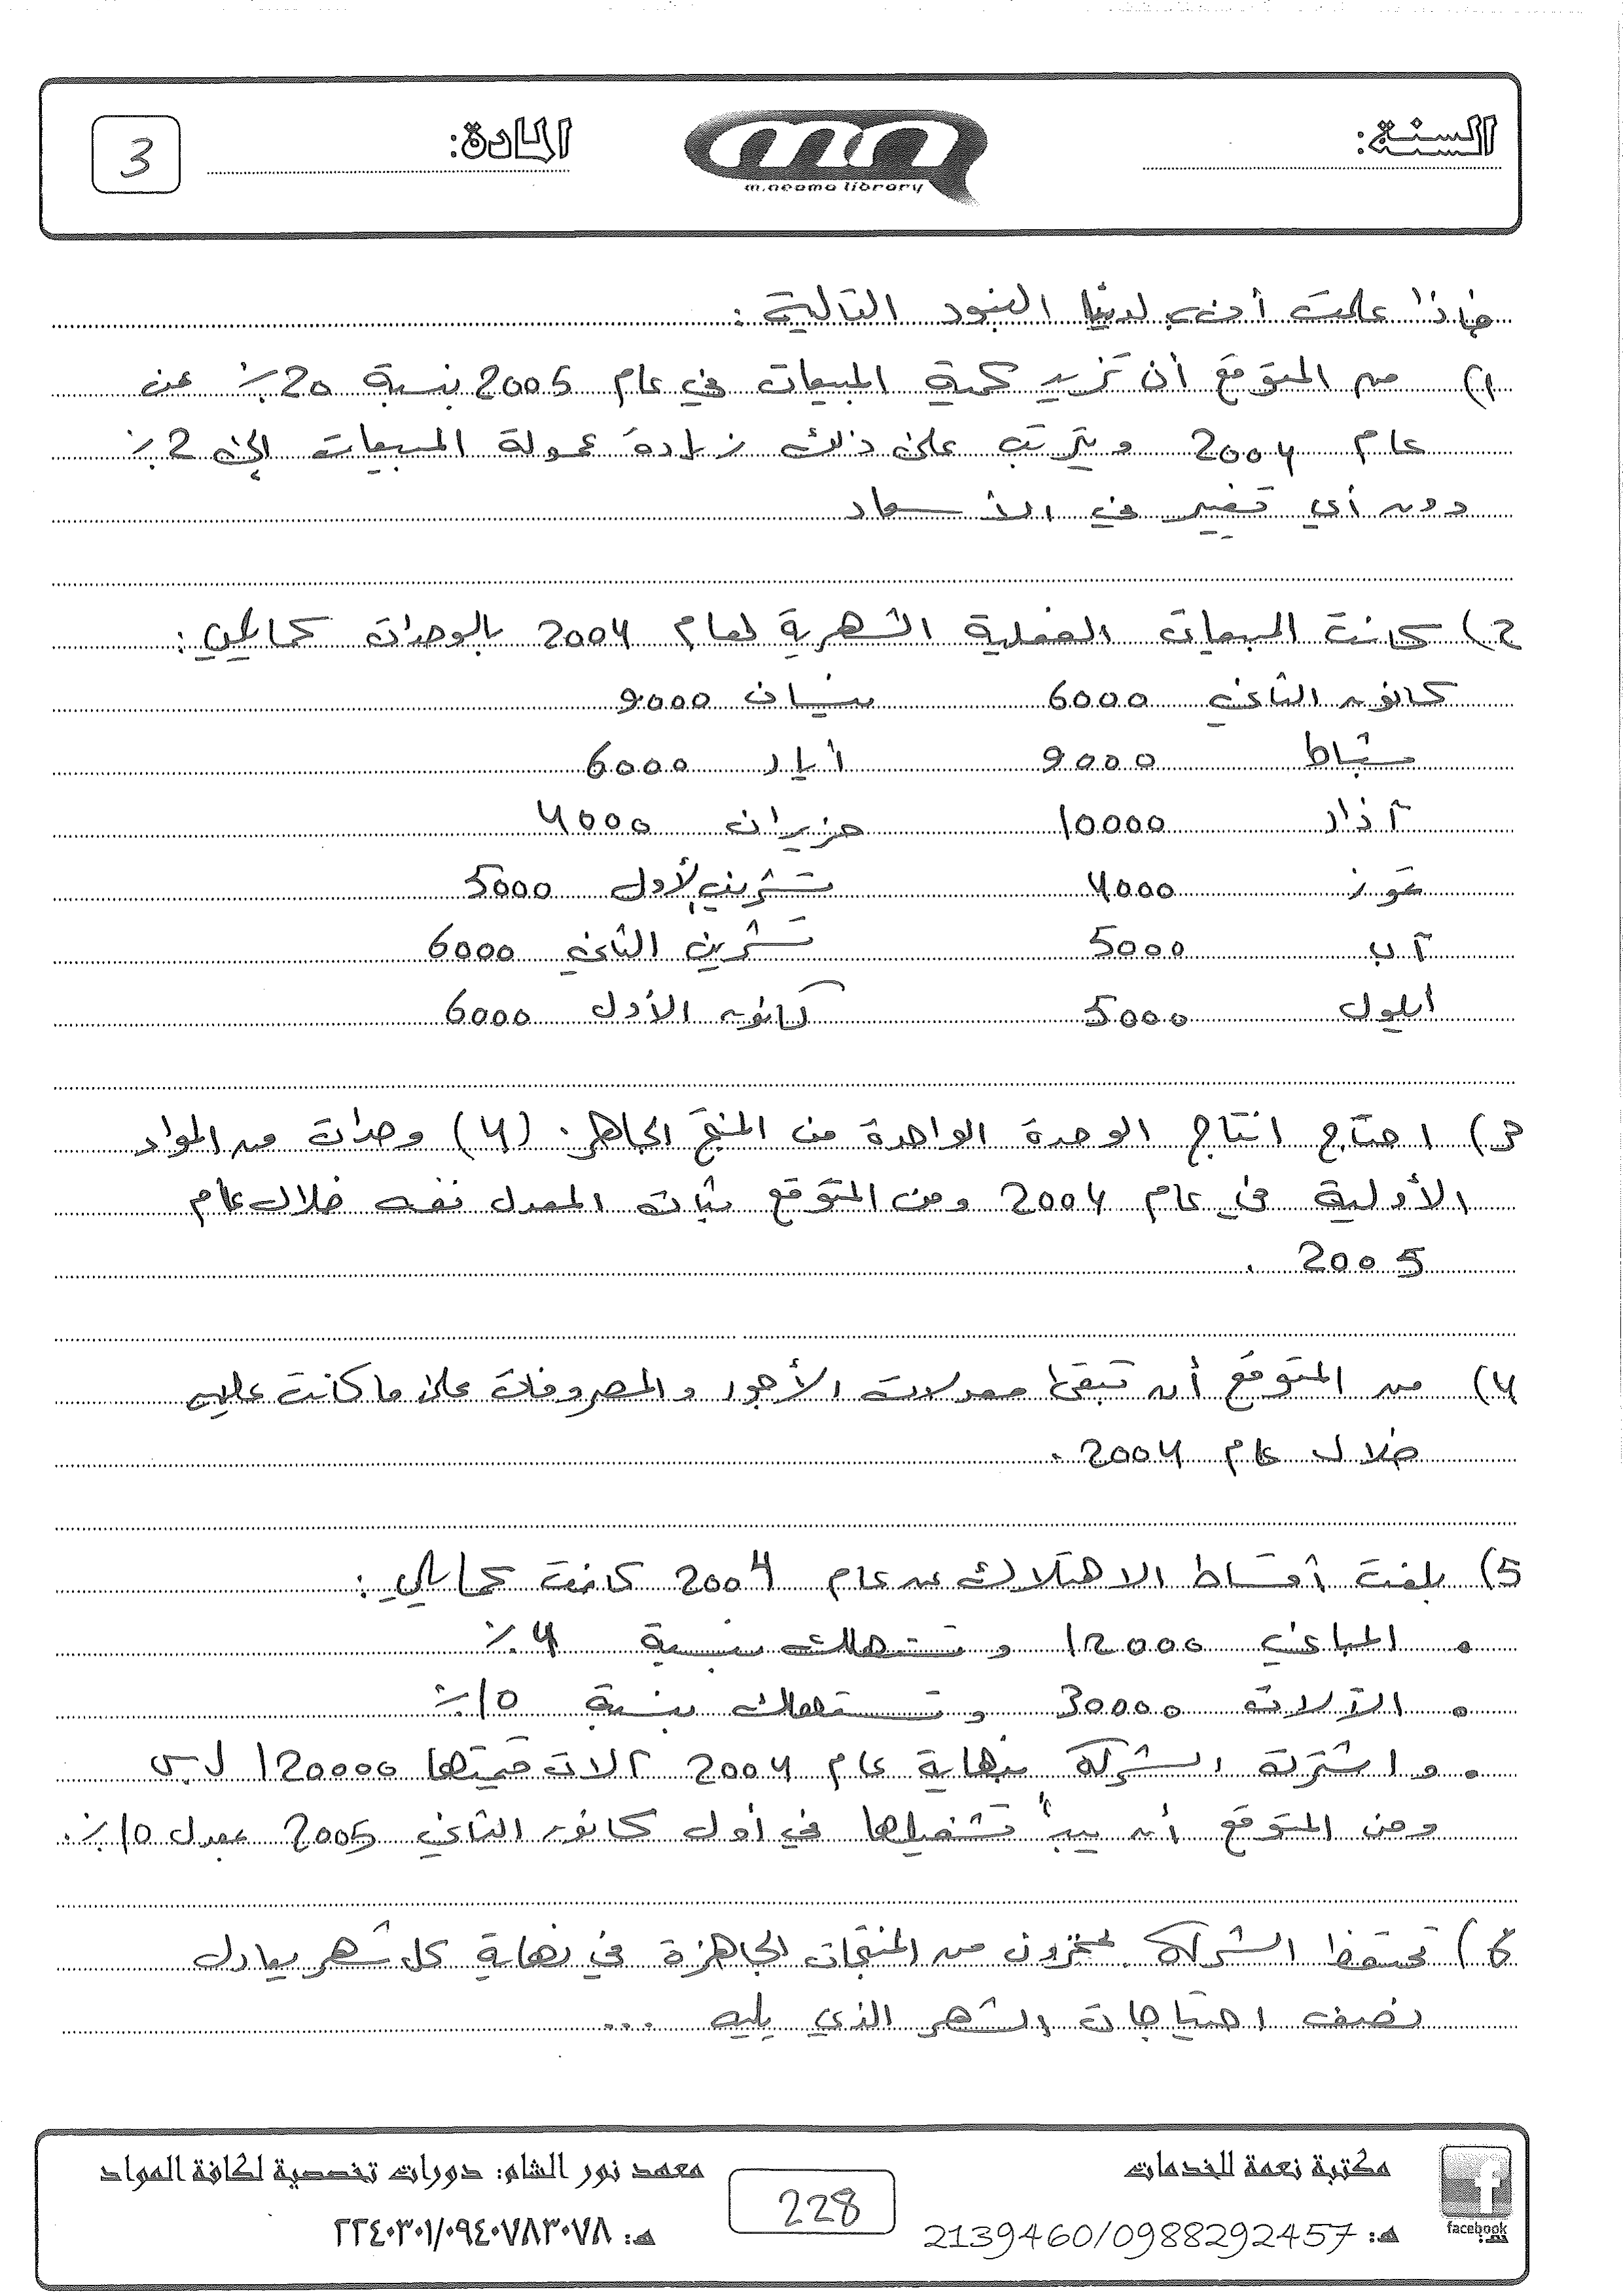 السنة:
m.neama library
المادة:
3
فإذا علمت أن لدينا البنود التالية:
1) من المتوقع أن تزيد كمية المبيعات في عام 2005 بنسبة 20٪ عن
عام 2004 ويترتب على ذلك زيادة عمولة المبيعات إلى 2٪
دون أي تغيير في الأسعار
2) كانت المبيعات الفعلية الشهرية لعام 2004 بالوحدات كمايلي:
كانون الثاني 6000 نيسان 9000
شباط 9000 أيار 6000
آذار 10000 حزيران 4000
تموز 4000 تشرين الأول 5000
آب 5000 تشرين الثاني 6000
أيلول 5000 كانون الأول 6000
3) احتاج انتاج الوحدة الواحدة من المنتج الجاهز (4) وحدات من المواد
الأولية في عام 2004 ومن المتوقع ثبات المعدل نفسه خلال عام
2005 .
4) من المتوقع أن تبقى معدلات الأجور والمصروفات على ما كانت عليه
خلال عام 2004 .
5) بلغت أقساط الاهتلاك عن عام 2004 كانت كمايلي:
• المباني 12000 وتستهلك بنسبة 4٪
• الآلات 30000 وتستهلك بنسبة 10٪
• واشترت الشركة بنهاية عام 2004 آلات قيمتها 120000 ل.س
ومن المتوقع أن يبدأ تشغيلها في أول كانون الثاني 2005 بمعدل 10٪.
6) تحتفظ الشركة بمخزون من المنتجات الجاهزة في نهاية كل شهر يعادل
نصف احتياجات الشهر الذي يليه ...
facebook
مكتبة نعمة للخدمات
هـ: 2139460/0988292457
228
معهد نور الشام: دورات تخصصية لكافة المواد
هـ: ٢٢٤٠٣٠١/٠٩٤٠٧٨٣٠٧٨